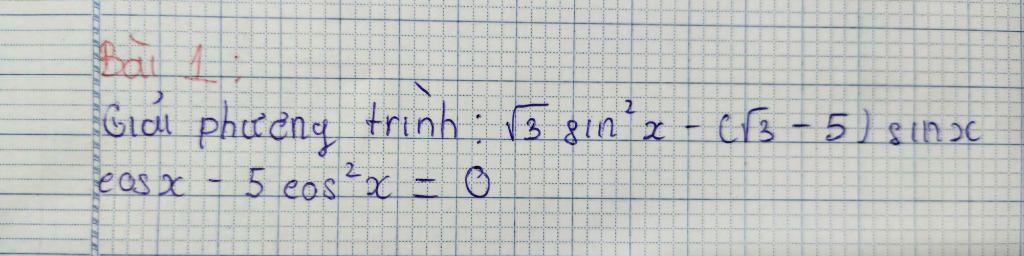 Bài 1:
Giải phương trình: √3 sin²x - (√3 - 5) sinx
cosx - 5 cos²x = 0